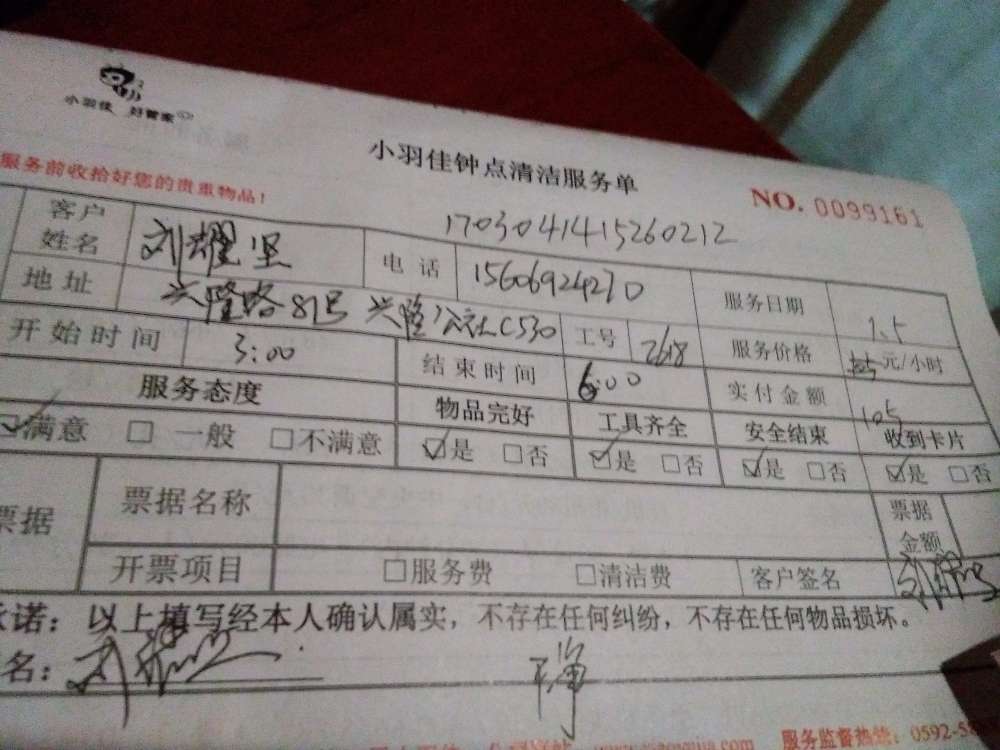 小羽佳 好管家
小羽佳钟点清洁服务单
服务前收拾好您的贵重物品！
NO. 0099161
1703041415260212
客户姓名 刘耀坚 电话 15606924270 服务日期 2.5
地址 兴隆路81号 兴隆公社C530 工号 2618 服务价格 元/小时
开始时间 3:00 结束时间 6:00 实付金额 105
服务态度 物品完好 工具齐全 安全结束 收到卡片
☑满意 □一般 □不满意 ☑是 □否 ☑是 □否 ☑是 □否 ☑是 □否
票据 票据名称 票据金额
开票项目 □服务费 □清洁费 客户签名
承诺：以上填写经本人确认属实，不存在任何纠纷，不存在任何物品损坏。
名： 干净
服务监督热线：0592-5